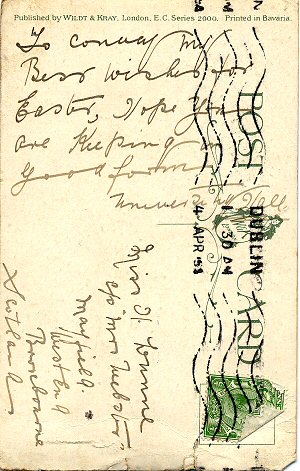 Published by WILDT & KRAY, London, E.C. Series 2000. Printed in Bavaria.
To convey my
Best wishes for
Easter, Hope you
are Keeping in
good form.
University Hall
POST CARD
DUBLIN
1 30 AM
4 APR
Miss
c/o Mrs Webster
Mayfield
West End
Scotland